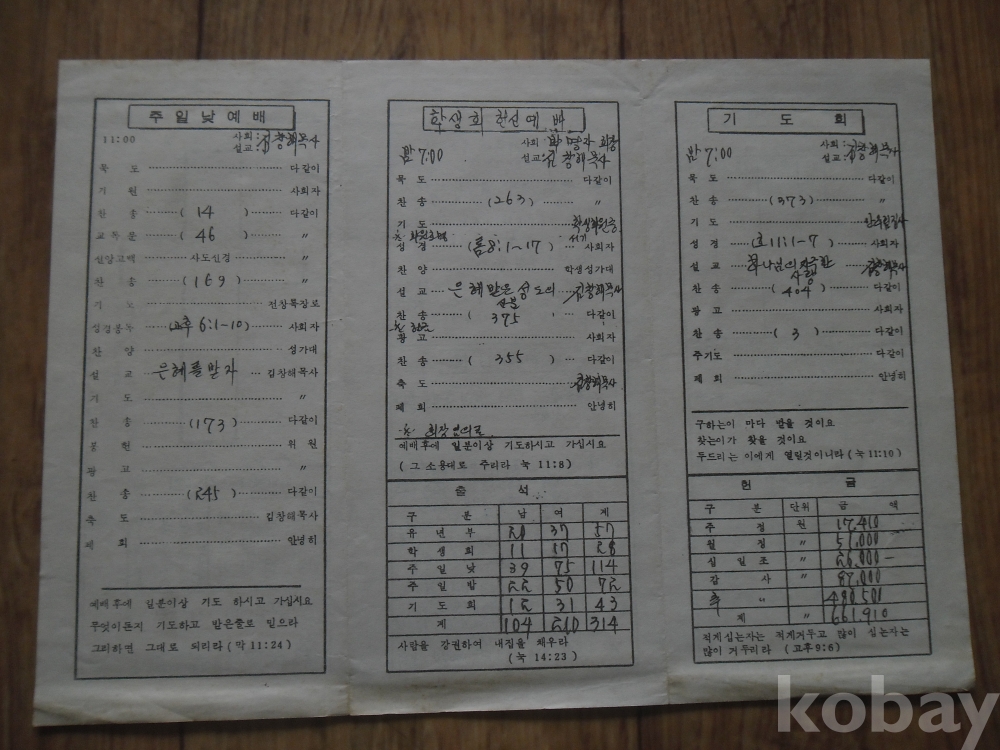 주일낮예배
11:00 사회: 김창해목사
설교:
묵 도 다같이
기 원 사회자
찬 송 ( 14 ) 다같이
교독문 ( 46 ) 〃
신앙고백 사도신경 〃
찬 송 ( 169 ) 〃
기 도 장로
성경봉독 고후 6:1~10) 사회자
찬 양 성가대
설 교 은혜를 받자 김창해목사
기 도 〃
찬 송 ( 173 ) 다같이
봉 헌 위 원
광 고 〃
찬 송 ( 245 ) 다같이
축 도 김창해목사
폐 회 안녕히
예배후에 일분이상 기도 하시고 가십시요
무엇이든지 기도하고 받은줄로 믿으라
그리하면 그대로 되리라 (막 11:24)
학생회 헌신예배
밤 7:00 사회: 회장
설교: 김창해목사
묵 도 다같이
찬 송 (263) 〃
기 도
성 경 (롬8:1~17) 사회자
찬 양 학생성가대
설 교 은혜 받은 성도의 김창해목사
찬 송 ( 375 ) 다같이
광 고 사회자
찬 송 ( 355 ) 다같이
축 도 김창해목사
폐 회 안녕히
예배후에 일분이상 기도하시고 가십시요
(그 소용대로 주리라 눅 11:8)
출 석
구 분 남 여 계
유 년 부 20 37 57
학 생 회 11 17 28
주 일 낮 39 75 114
주 일 밤 22 50 72
기 도 회 12 31 43
계 104 210 314
사람을 강권하여 내집을 채우라
(눅 14:23)
기 도 회
밤 7:00 사회: 김창해목사
설교:
묵 도 다같이
찬 송 (373) 〃
기 도
성 경 (호 11:1-7) 사회자
설 교 하나님의 지극한 사랑 김창해목사
찬 송 ( 404 ) 다같이
광 고 사회자
찬 송 ( 3 ) 다같이
주기도 다같이
폐 회 안녕히
구하는이 마다 받을 것이요
찾는이가 찾을 것이요
두드리는 이에게 열릴것이니라 (눅 11:10)
헌 금
구 분 단위 금 액
주 정 원 17,410
월 정 〃
십 일 조 〃 26,000 -
감 사 〃 87,000
〃 480,500
계 〃 661,910
적게심는자는 적게거두고 많이 심는자는
많이 거두리라 (고후9:6)
kobay